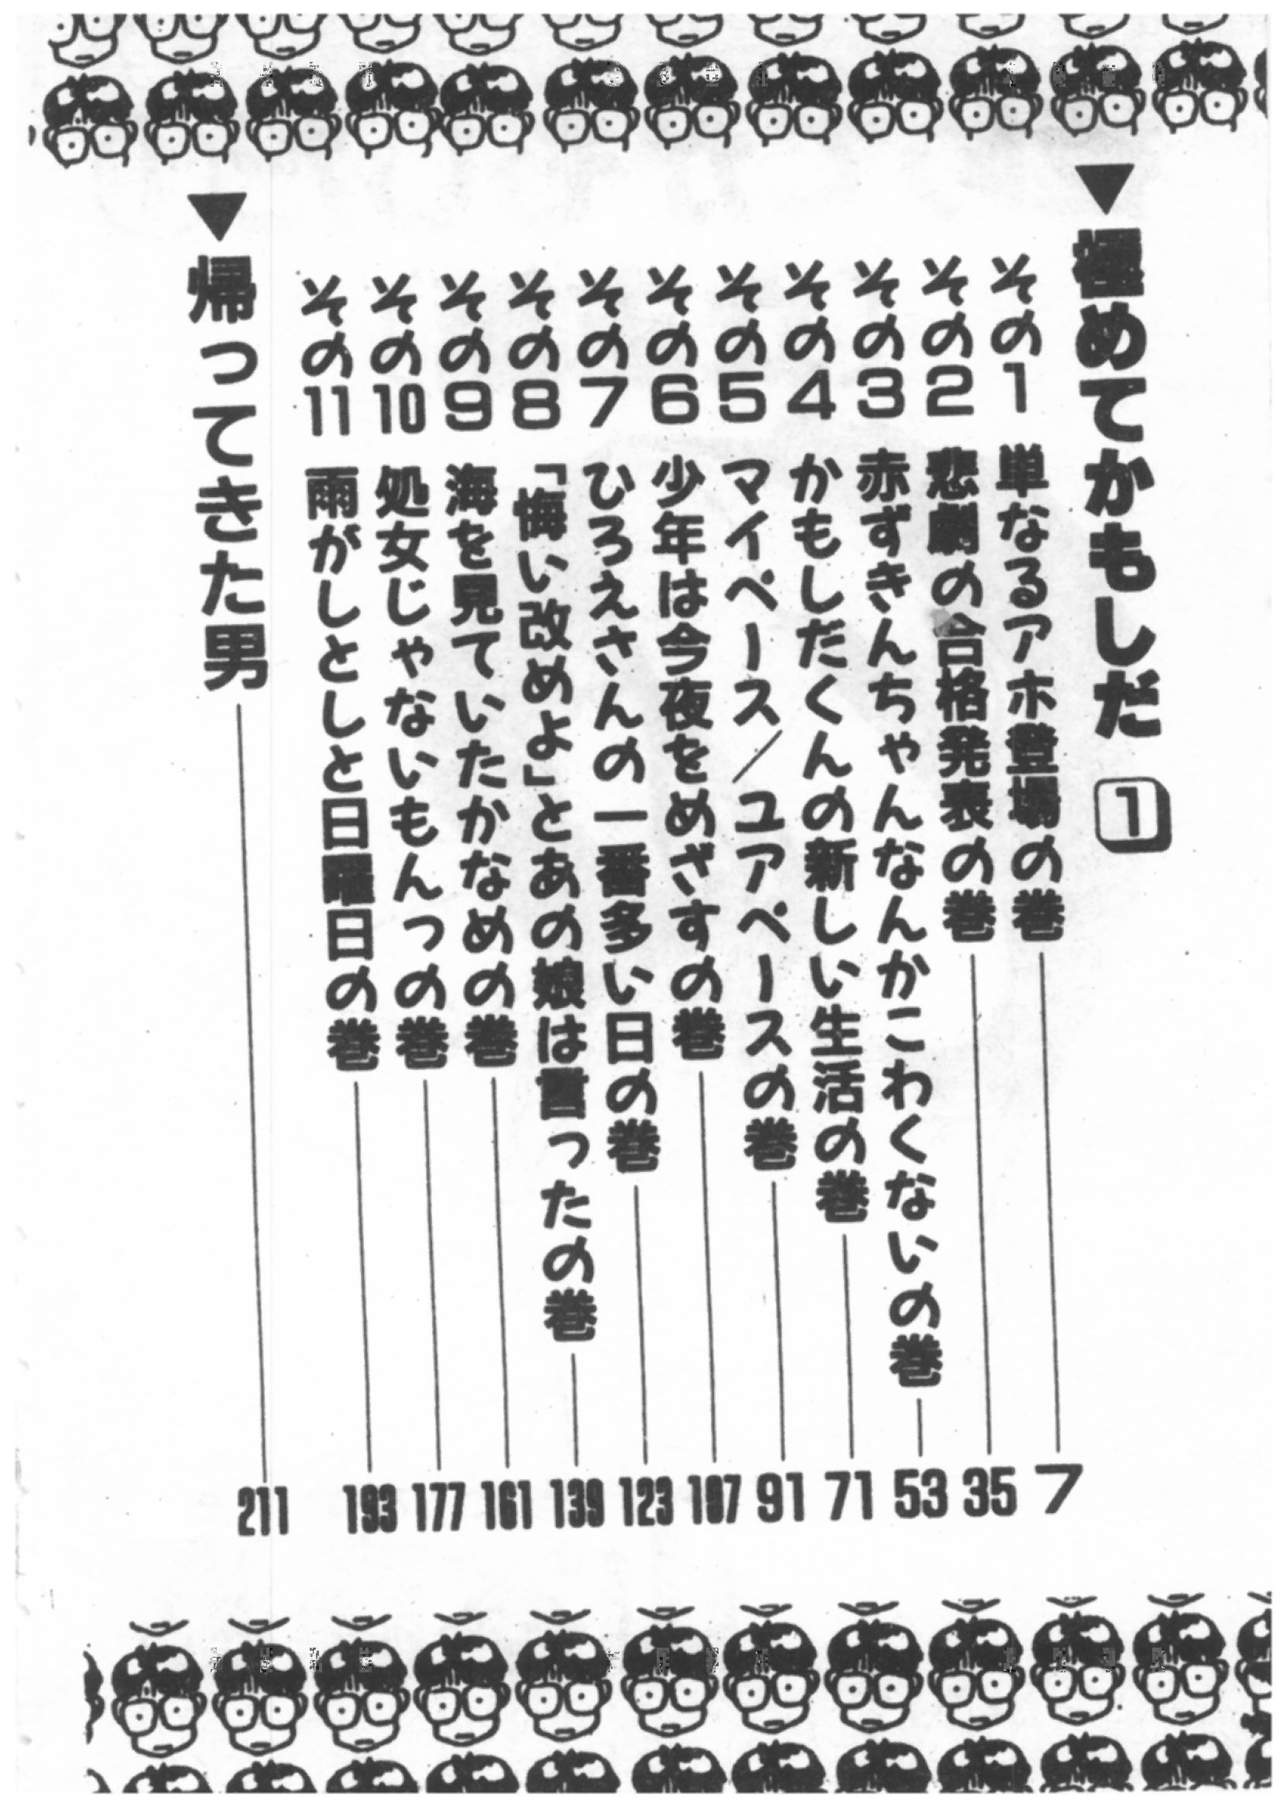 ▼極めてかもしだ 1
その1 単なるアホ登場の巻 7
その2 悲劇の合格発表の巻 35
その3 赤ずきんちゃんなんかこわくないの巻 53
その4 かもしだくんの新しい生活の巻 71
その5 マイペース/ユアペースの巻 91
その6 少年は今夜をめざすの巻 107
その7 ひろえさんの一番多い日の巻 123
その8 「悔い改めよ」とあの娘は言ったの巻 139
その9 海を見ていたかなめの巻 161
その10 処女じゃないもんっの巻 177
その11 雨がしとしと日曜日の巻 193
▼帰ってきた男 211